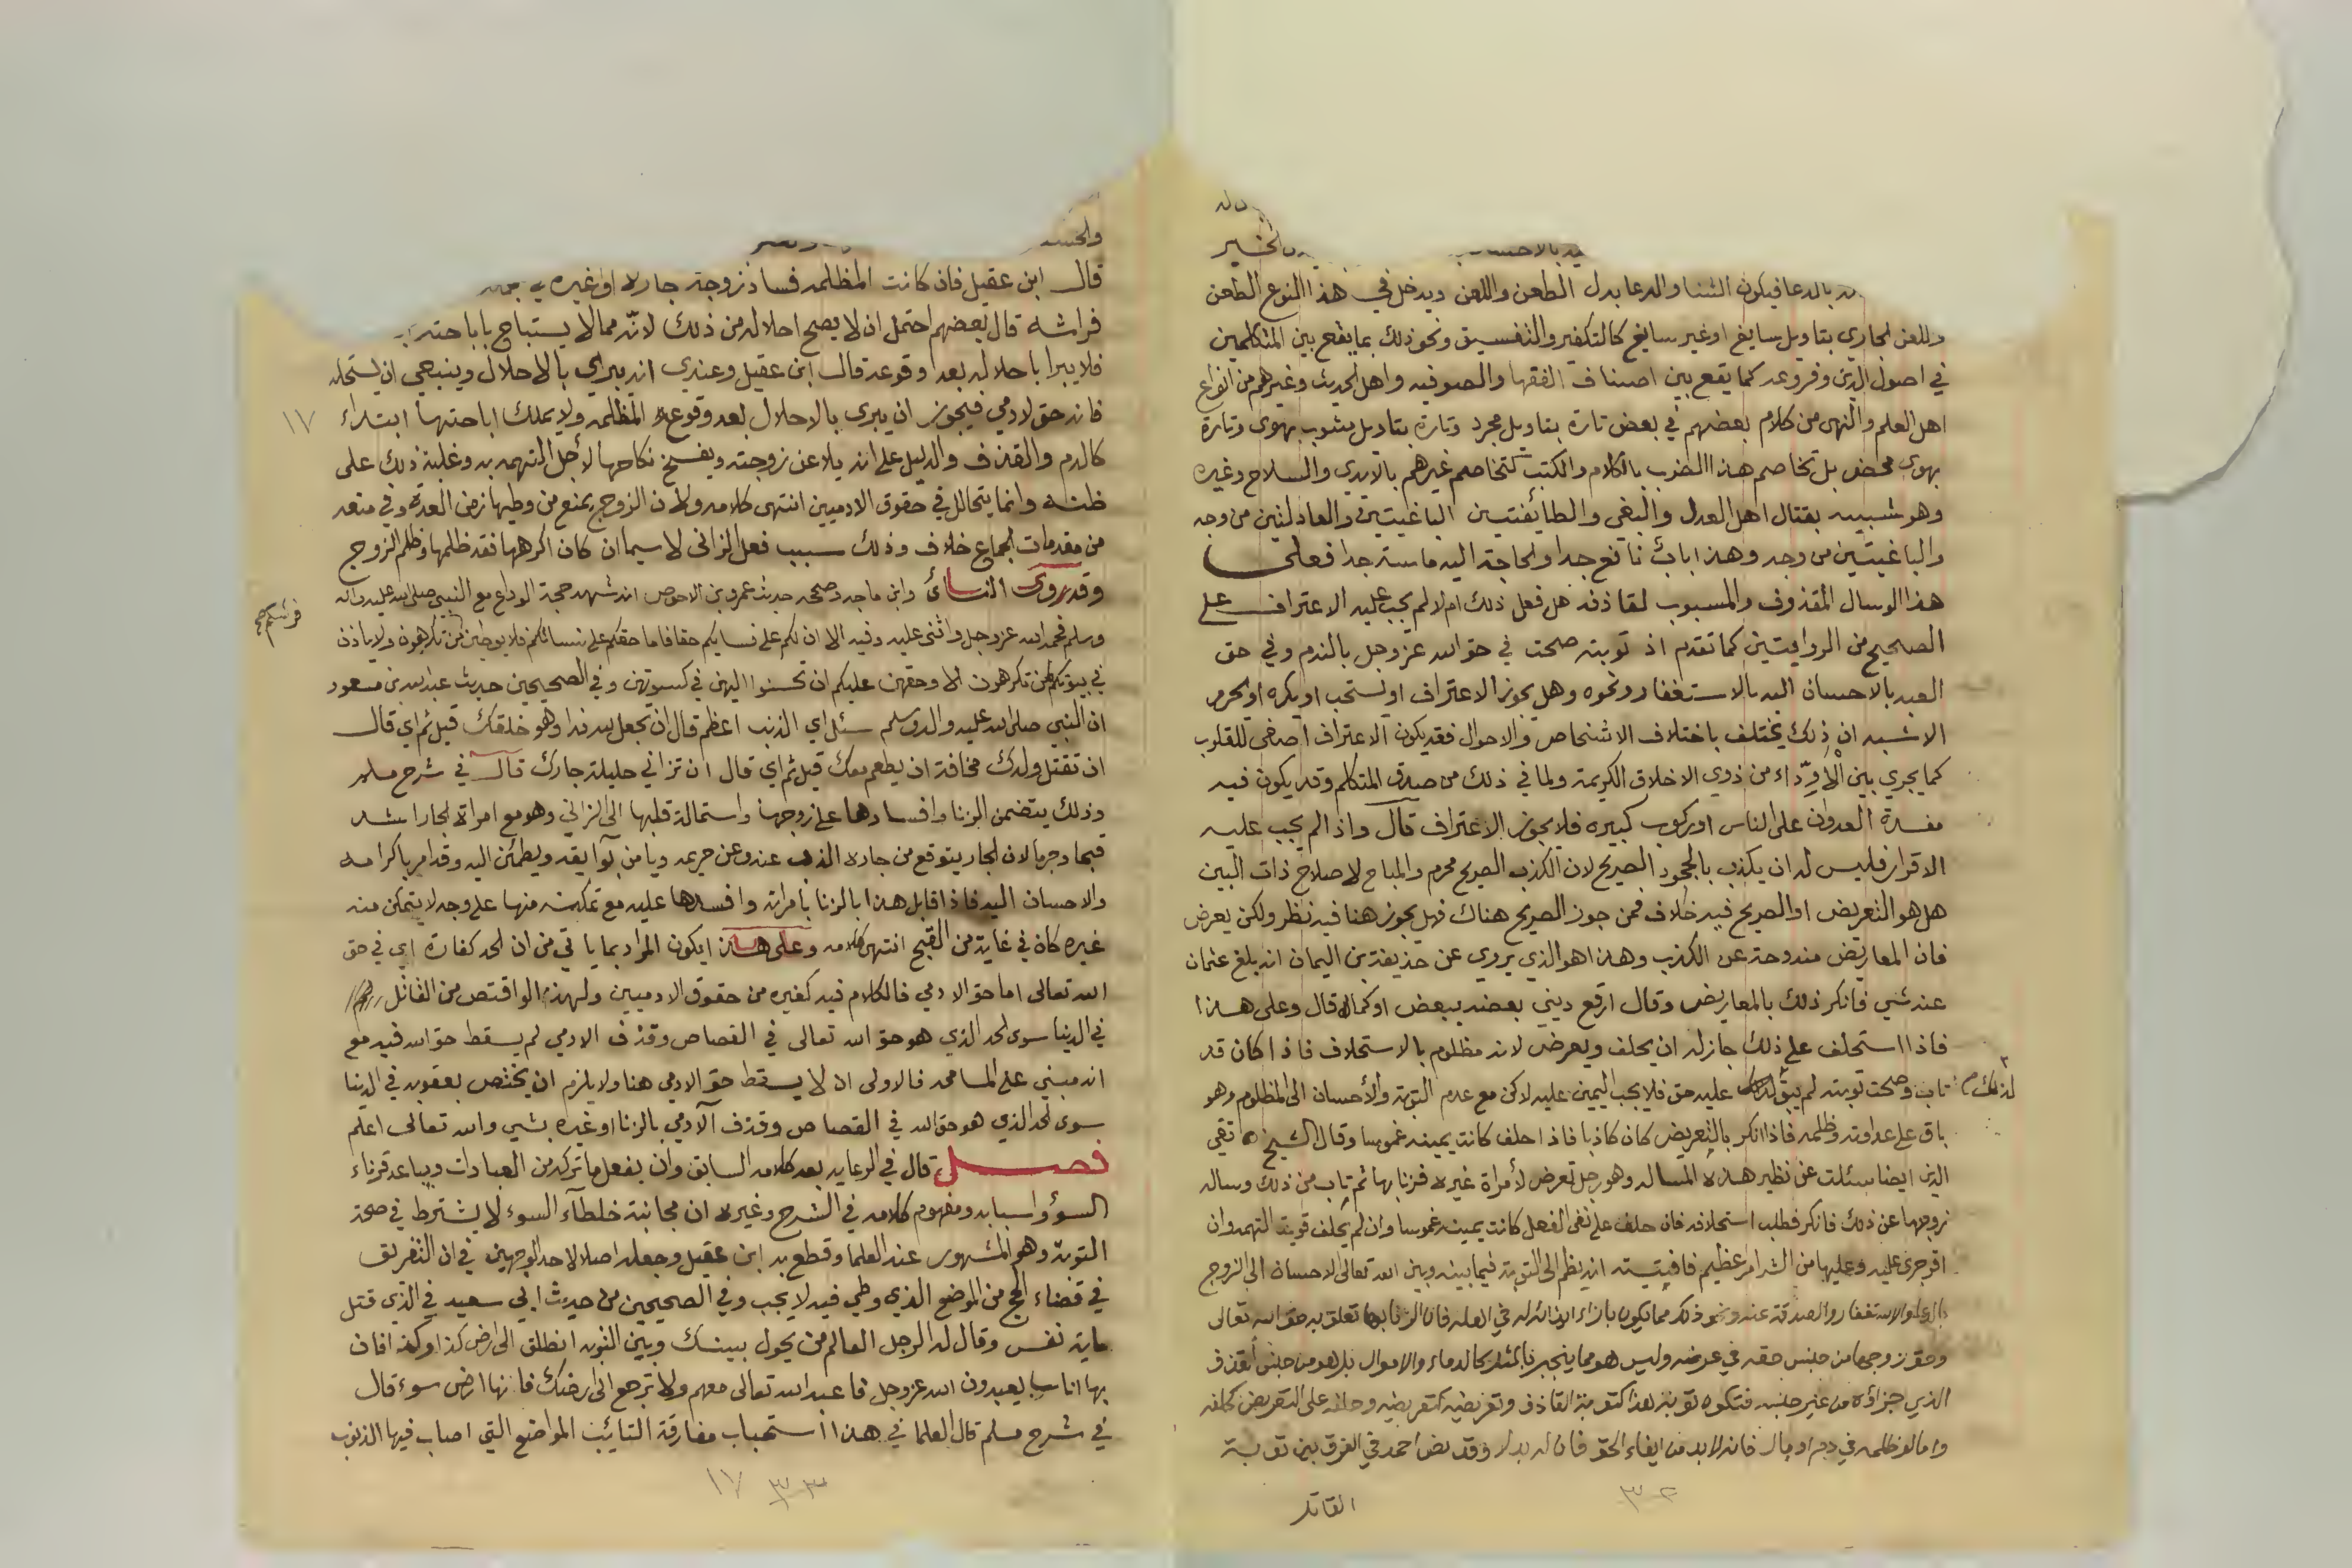 وله
يه بالاحسان
الخير
له بالدعا فيكون الثنا والدعا بدل الطعن واللعن ويدخل في هذا النوع الطعن
واللعن الجاري بتاويل سايغ او غير سايغ كالتكفير والتفسيق ونحو ذلك بما يقع بين المتكلمين
في اصول الدين وفروعه كما يقع بين اصناف الفقها والصوفيه واهل الحديث وغيرهم من انواع
اهل العلم والنهى من كلام بعضهم في بعض تارة بتاويل مجرد وتارة بتاويل مشوب بهوى وتارة
بهوى محض بل تخاصم هذا الضرب بالكلام والكتب كتخاصم غيرهم بالايدي والسلاح وغيره
وهو شبيه بقتال اهل العدل والبغي والطائفتين الباغيتين والعادلتين من وجه
والباغيتين من وجه وهذا باب نافع جدا والحاجة اليه ماسة جدا فعلى
هذا لو سال المقذوف والمسبوب لقاذفه هل فعل ذلك ام لا لم يجب عليه الاعتراف على
الصحيح من الروايتين كما تقدم اذ توبته صحت في حق الله عز وجل بالندم وفي حق
العبد بالاحسان اليه بالاستغفار ونحوه وهل يجوز الاعتراف او يستحب او يكره او يحرم
الاشبه ان ذلك يختلف باختلاف الاشخاص والاحوال فقد يكون الاعتراف اصفى للقلوب
كما يجري بين الأودّاء من ذوي الاخلاق الكريمة ولما في ذلك من صدق المتكلم وقد يكون فيه
مفسدة العدوان على الناس او ركوب كبيره فلا يجوز الاعتراف قال واذا لم يجب عليه
الاقرار فليس له ان يكذب بالجحود الصريح لان الكذب الصريح محرم والمباح لاصلاح ذات البين
هل هو التعريض او الصريح فيه خلاف فمن جوز الصريح هناك فهل يجوز هنا فيه نظر ولكن يعرض
فان المعاريض مندوحة عن الكذب وهذا هو الذي يروى عن حذيفة بن اليمان انه بلغ عثمان
عنه شي فانكر ذلك بالمعاريض وقال ارقع ديني بعضه ببعض او كما قال وعلى هذا
فاذا استحلف على ذلك جاز له ان يحلف ويعرض لانه مظلوم بالاستحلاف فاذا كان قد
تاب وصحت توبته لم يبق لذلك عليه حق فلا يجب اليمين عليه لكن مع عدم التوبة والأحسان الى المظلوم وهو
لذلك صح
باق على عداوته وظلمه فاذا انكر بالتعريض كان كاذبا فاذا حلف كانت يمينه غموسا وقال الشيخ تقي
الدين ايضا سئلت عن نظير هذه المساله وهو رجل تعرض لأمراة غيره فزنا بها ثم تاب من ذلك وساله
زوجها عن ذلك فانكر فطلب استحلافه فان حلف على نفي الفعل كانت يمينه غموسا وان لم يحلف قويت التهمه وان
اقر جرى عليه وعليها من الشر امر عظيم فافتيته انه يظم الى التوبة فيما بينه وبين الله تعالى الاحسان الى الزوج
بالدعا والاستغفار والصدقة عنه ونحو ذلك مما يكون بازاء ايذائه له في اهله فان الزنا بها تعلق به حق الله تعالى
وحق زوجها من جنس حقه في عرضه وليس هو مما ينجبر بالمثل كالدماء والاموال بل هو من جنس القذف
الذي جزاؤه من غير جنسه فتكون توبة هذا كتوبة القاذف وتعريضه كتعريضه وحلفه على التعريض كحلفه
واما لو ظلمه في دم او مال فانه لا بد من ايفاء الحق فان له بدلا وقد نص احمد في الفرق بين توبة
القاتل
٣٢
قال ابن عقيل فان كانت المظلمه فساد زوجة جاره او غيره
فراشه قال بعضهم احتمل ان لا يصح احلاله من ذلك لانّه مما لا يستباح باباحته
فلا يبرا باحلاله بعد وقوعه قال ابن عقيل وعندي انه يبرى بالاحلال وينبغي ان يستحله
فانه حق لادمي فيجوز ان يبرى بالاحلال بعد وقوع المظلمه ولا يملك اباحتها ابتداء
١٧
كالدم والقذف والدليل على انه يلاعن زوجته ويفسخ نكاحها لأجل التهمه به وغلبة ذلك على
ظنه وانما يتحالل في حقوق الادميين انتهى كلامه ولان الزوج يمنع من وطيها زمن العدة وفي منعه
من مقدمات الجماع خلاف وذلك سبب فعل الزانى لا سيما ان كان اكرهها فقد ظلمها وظلم الزوج
وقد روى النسائ وابن ماجه وصححه حديث عمرو بن الاحوص انه شهد حجة الوداع مع النبي صلى الله عليه واله
وسلم فحمد الله عز وجل واثنى عليه وفيه الا ان لكم على نسايكم حقا فاما حقكم على نسائكم فلا يوطين من تكرهون ولا ياذن
فرشكم صح
في بيوتكم لمن تكرهون الا وحقهن عليكم ان تحسنوا اليهن في كسوتهن وفي الصحيحين حديث عبد الله بن مسعود
ان النبي صلى الله عليه واله وسلم سئل اي الذنب اعظم قال ان يجعل لله ندا وهو خلقك قيل ثم اي قال
ان تقتل ولدك مخافة ان يطعم معك قيل ثم اي قال ان تزاني حليلة جارك قال في شرح مسلم
وذلك يتضمن الزنا وافسادها على زوجها واستمالة قلبها الى الزاني وهو مع امراة الجار اشد
قبحا وجرما لان الجار يتوقع من جاره الذب عنه وعن حريمه ويامن بوآيقه ويطمئن اليه وقد امر باكرامه
والاحسان اليه فاذا قابل هذا بالزنا بامراته وافسدها عليه مع تمكنه منها على وجه لا يتمكن منه
غيره كان في غاية من القبح انتهى كلامه وعلى هذا يكون المراد بما ياتي من ان الحد كفارة اي في حق
الله تعالى اما حق الادمي فالكلام فيه كغيره من حقوق الادميين ولهذا لو اقتص من القاتل
في الدنيا سوى الحد الذي هو حق الله تعالى في القصاص وقذف الادمي لم يسقط حق الله فيه مع
انه مبني على المسامحه فالاولى ان لا يسقط حق الادمي هنا ولا يلزم ان يختص بعقوبه في الدنيا
سوى الحد الذي هو حق الله في القصاص وقذف الآدمي بالزنا او غيره بشي والله تعالى اعلم
فصل قال في الرعايه بعد كلامه السابق وان يفعل ما تركه من العبادات ويباعد قرناء
السوؤ واسبابه ومفهوم كلامه في الشرح وغيره ان مجانبة خلطآء السوء لا يشترط في صحة
التوبة وهو المشهور عند العلما وقطع به ابن عقيل وجعله اصلا لاحد الوجهين في ان التفريق
في قضاء الحج من الموضع الذي وطي فيه لا يجب وفي الصحيحين من حديث ابي سعيد في الذي قتل
ماية نفس وقال له الرجل العالم من يحول بينك وبين التوبه انطلق الى ارض كذا وكذا فان
بها اناسا يعبدون الله عز وجل فاعبد الله تعالى معهم ولا ترجع الى ارضك فانها ارض سوء قال
في شرح مسلم قال العلما في هذا استحباب مفارقة التائب المواضع التي اصاب فيها الذنوب
٣٣ ١٧